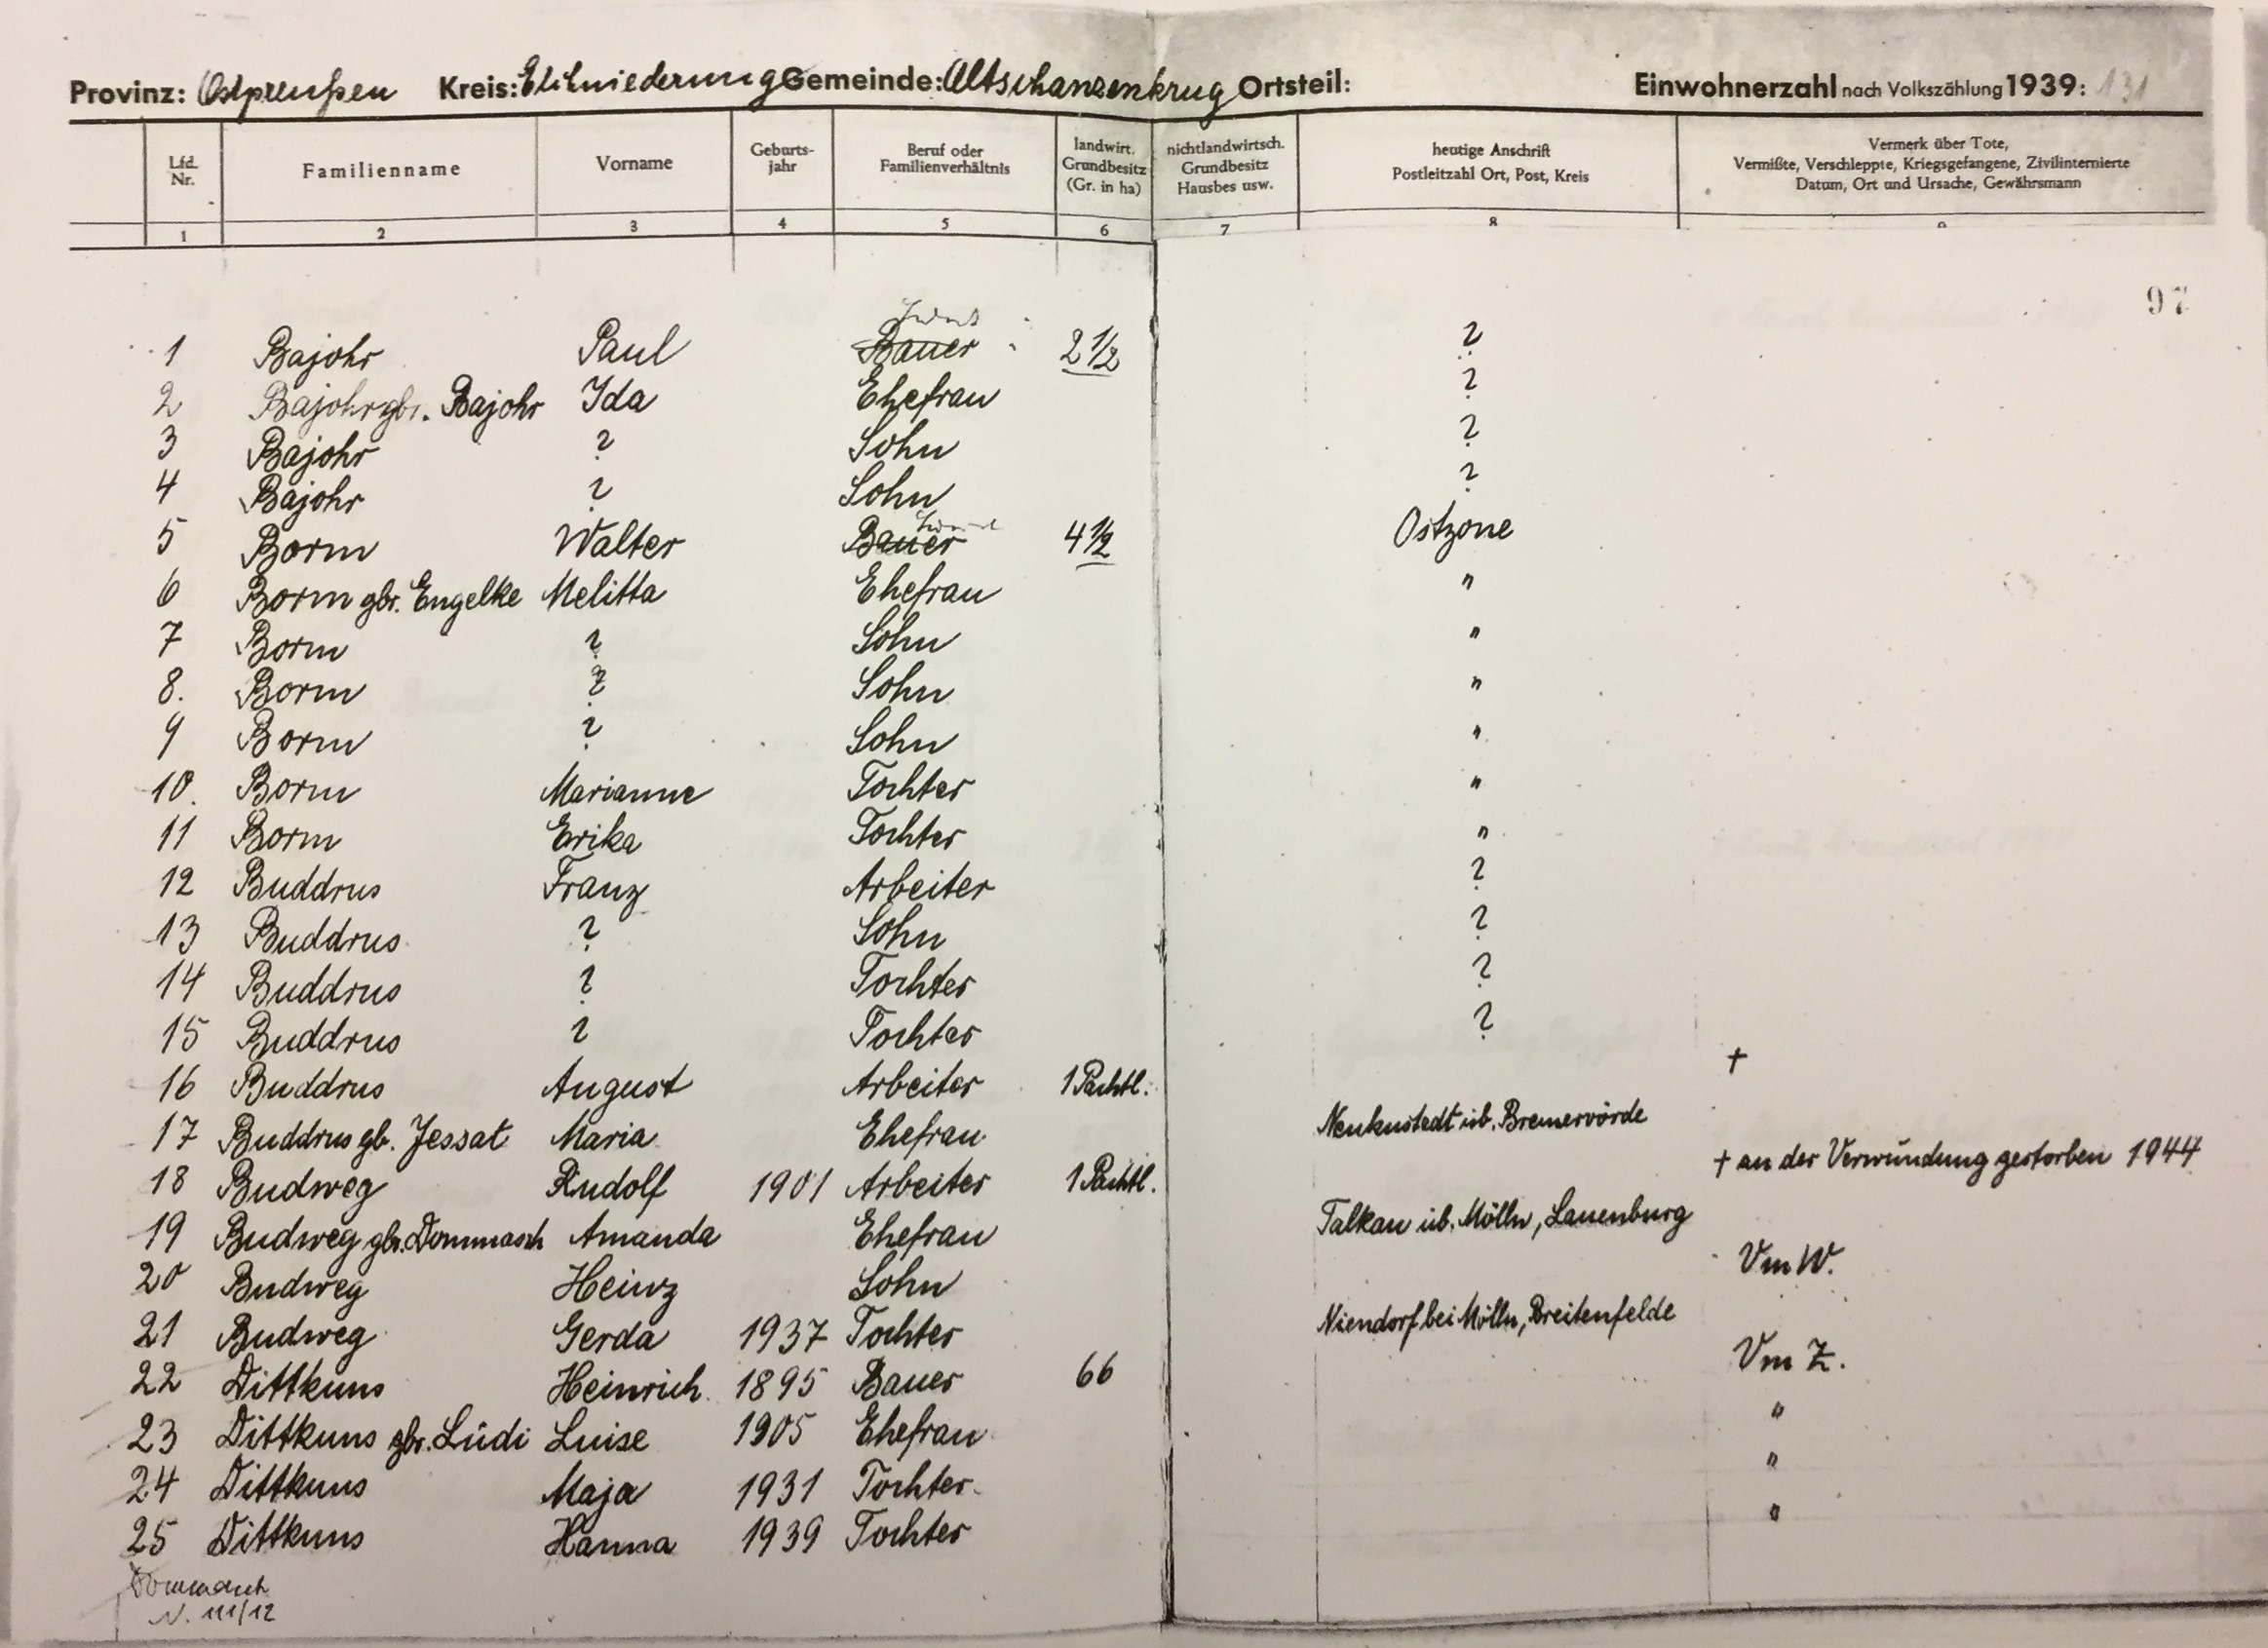 Provinz: Ostpreußen Kreis: Elchniederung Gemeinde: Altschanzenkrug Ortsteil: Einwohnerzahl nach Volkszählung 1939: 131
Lfd. Nr. Familienname Vorname Geburts-jahr Beruf oder Familienverhältnis landwirt. Grundbesitz (Gr. in ha) nichtlandwirtsch. Grundbesitz Hausbes usw. heutige Anschrift Postleitzahl Ort, Post, Kreis Vermerk über Tote, Vermißte, Verschleppte, Kriegsgefangene, Zivilinternierte Datum, Ort und Ursache, Gewährsmann
1 2 3 4 5 6 7 8 9
97
1 Bajohr Paul Bauer 2 1/2 ?
2 Bajohr gbr. Bajohr Ida Ehefrau ?
3 Bajohr ? Sohn ?
4 Bajohr ? Sohn ?
5 Borm Walter Bauer 4 1/2 Ostzone
6 Borm gbr. Engelke Melitta Ehefrau "
7 Borm ? Sohn "
8. Borm ? Sohn "
9 Borm ? Sohn "
10. Borm Marianne Tochter "
11 Borm Erika Tochter "
12 Buddrus Franz Arbeiter ?
13 Buddrus ? Sohn ?
14 Buddrus ? Tochter ?
15 Buddrus ? Tochter ?
16 Buddrus August Arbeiter 1 Pachtl. †
17 Buddrus gb. Jessat Maria Ehefrau üb. Bremervörde
18 Budweg Rudolf 1901 Arbeiter 1 Pachtl. † an der Verwundung gestorben 1944
19 Budweg gbr. Dommasch Amanda Ehefrau Talkau üb. Mölln, Lauenburg
20 Budweg Heinz Sohn Vm W.
21 Budweg Gerda 1937 Tochter Niendorf bei Mölln, Breitenfelde
22 Dittkuns Heinrich 1895 Bauer 66 Vm Z.
23 Dittkuns gbr. Lüdi Luise 1905 Ehefrau "
24 Dittkuns Maja 1931 Tochter "
25 Dittkuns Hanna 1939 Tochter "
Dommasch
N. 111/12